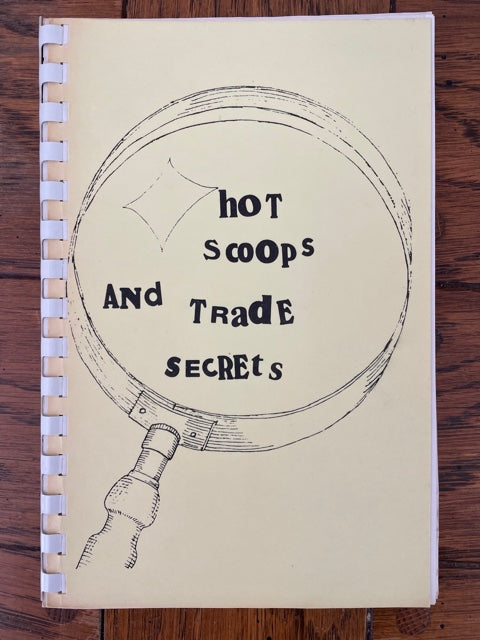 hoT
ScOOpS
ANd TRadE
SECREtS